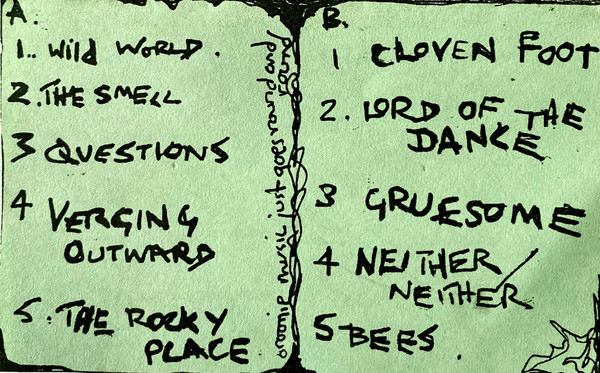 A.
1.. Wild WORLD.
2. THE SMELL
3 QUESTIONS
4 VERGING
OUTWARD
5. THE ROCKY
PLACE
music just goes round and
round
B.
1 CLOVEN FOOT
2. LORD OF THE
DANCE
3 GRUESOME
4 NEITHER
NEITHER
5 BEES.